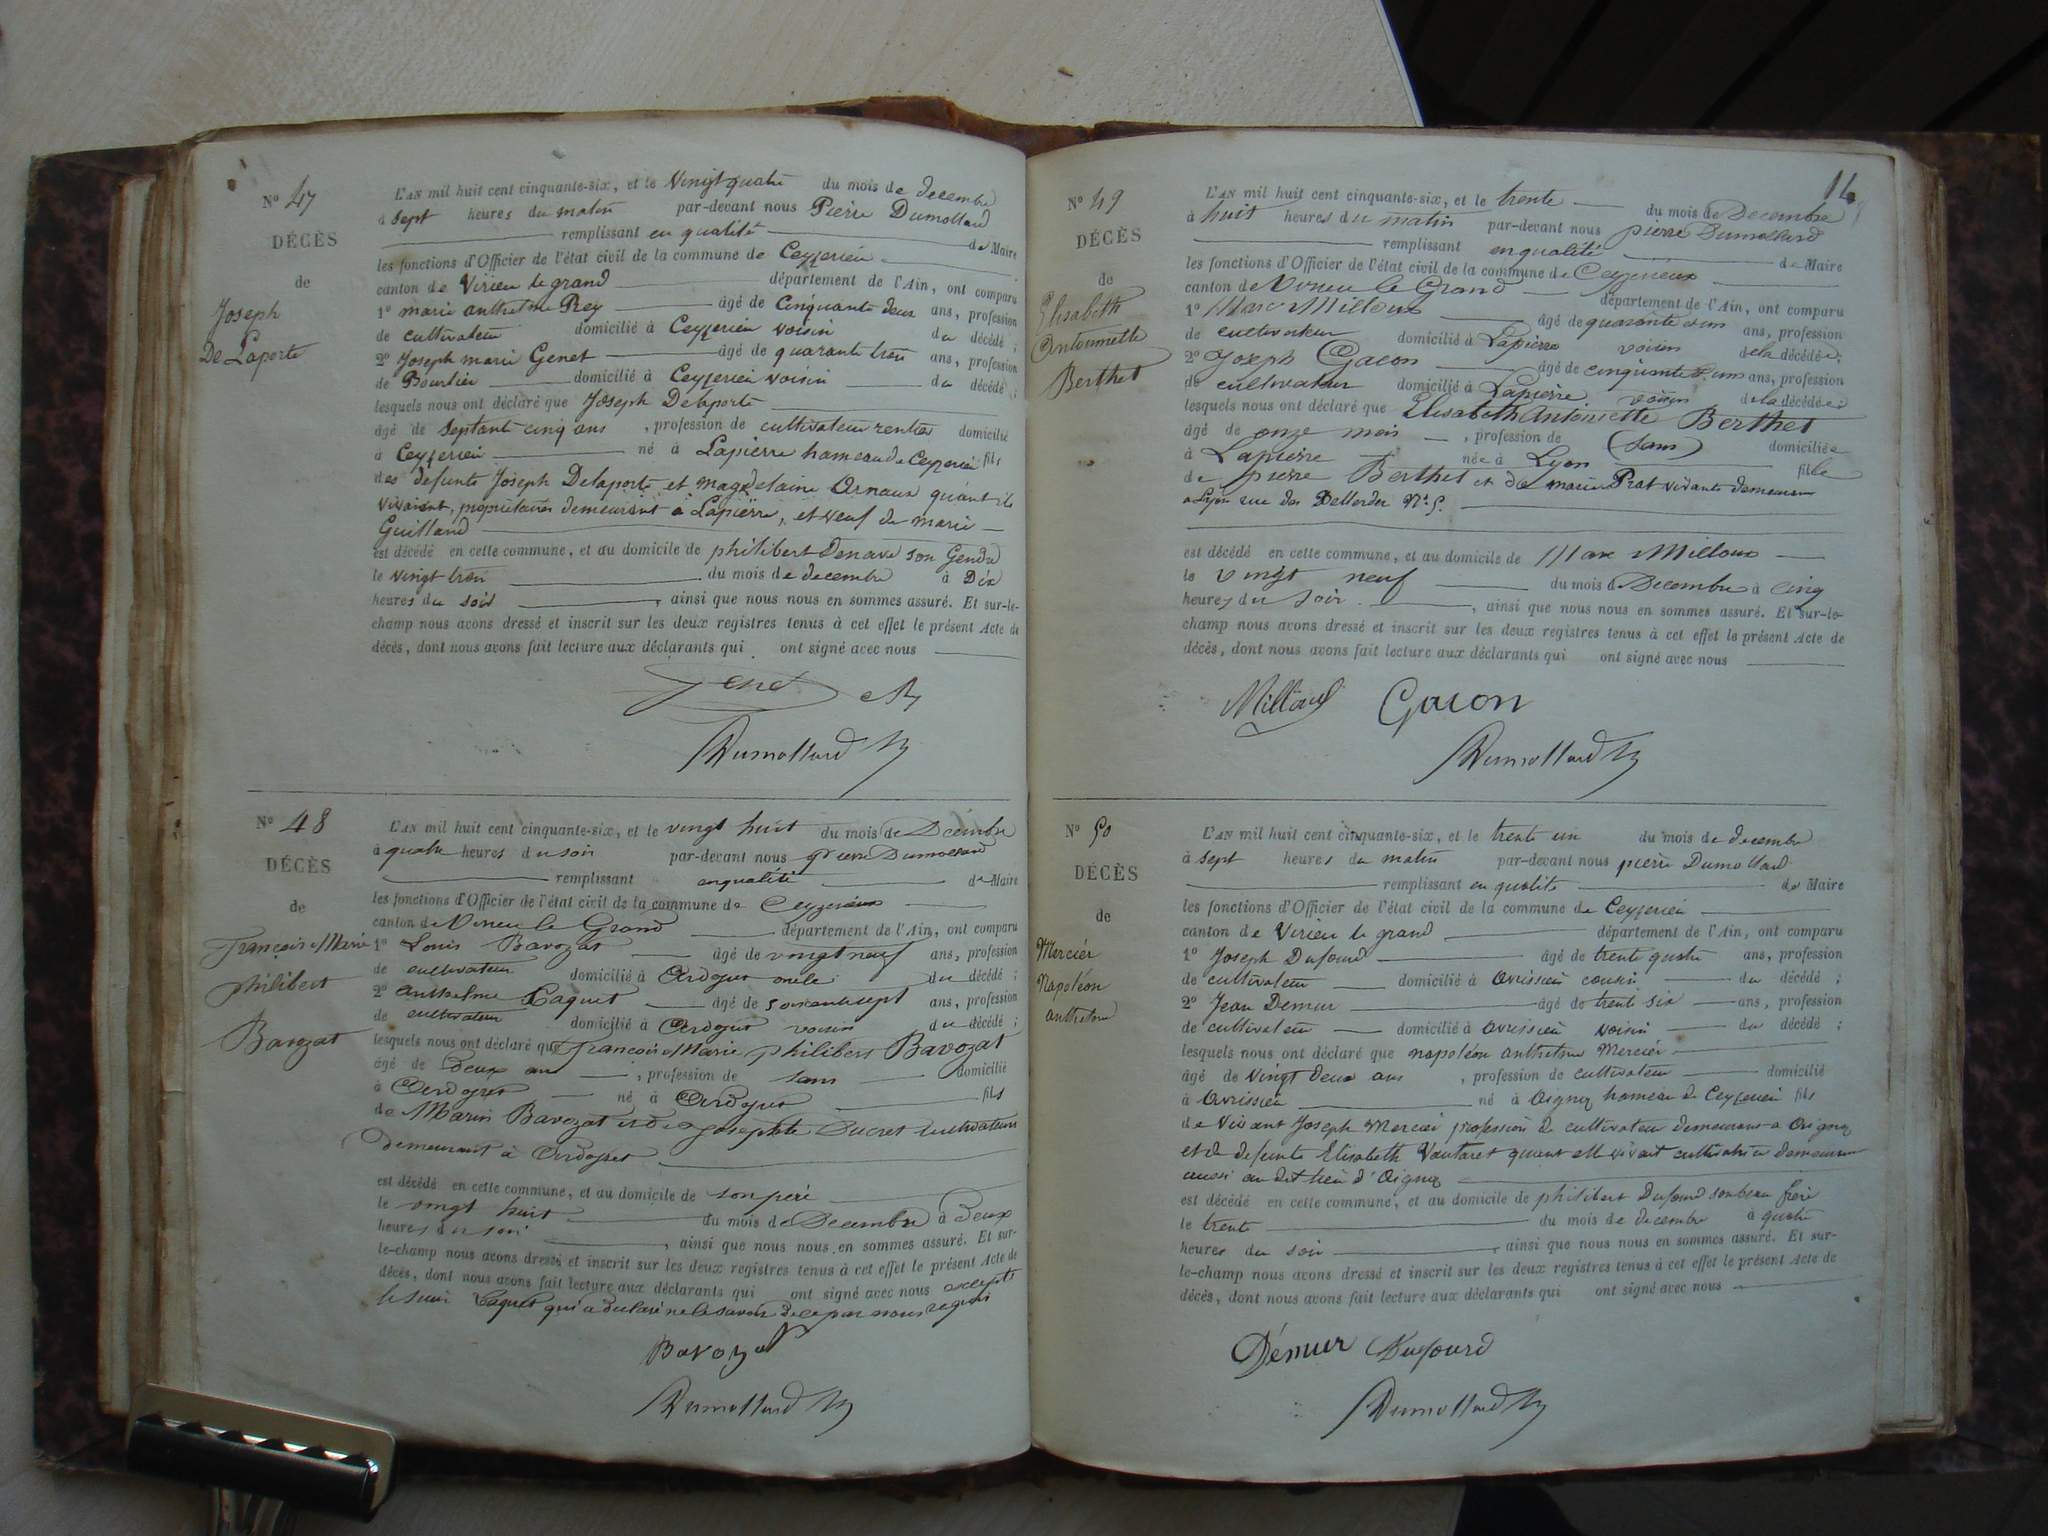 No 47
DÉCÈS
de
Joseph
De Laporte
L'AN mil huit cent cinquante-six, et le Vingt quatre du mois de decembre
à sept heures du matin par-devant nous Pierre Dumollard
remplissant en qualité de Maire
les fonctions d'Officier de l'état civil de la commune de Ceyzerieu
canton de Virieu le grand département de l'Ain, ont comparu
1o marie anthelme Rey âgé de Cinquante deux ans, profession
de cultivateur domicilié à Ceyzerieu voisin du décédé ;
2o Joseph marie Genet âgé de quarante trois ans, profession
de Bourlier domicilié à Ceyzerieu voisin du décédé ;
lesquels nous ont déclaré que Joseph Delaporte
âgé de Septante cinq ans , profession de cultivateur rentier domicilié
à Ceyzerieu né à Lapierre hameau de Ceyzerieu fils
des defunts Joseph Delaporte et magdelaine Ornaux quant ils
vivaient, propriétaires demeurant à Lapierre, et veuf de marie
Guilland
est décédé en cette commune, et au domicile de philibert Denave son Gendre
le vingt trois du mois de decembre à Dix
heures du soir , ainsi que nous nous en sommes assuré. Et sur-le-
champ nous avons dressé et inscrit sur les deux registres tenus à cet effet le présent Acte de
décès, dont nous avons fait lecture aux déclarants qui ont signé avec nous
Genet
Dumollard
No 48
DÉCÈS
de
François Marie
philibert
Bavozat
L'AN mil huit cent cinquante-six, et le vingt huit du mois de Décembre
à quatre heures du soir par-devant nous pierre Dumollard
remplissant en qualité de Maire
les fonctions d'Officier de l'état civil de la commune de Ceyzerieux
canton de Virieu le Grand département de l'Ain, ont comparu
1o Louis Bavozat âgé de vingt neuf ans, profession
de cultivateur domicilié à Ardosset oncle du décédé ;
2o anthelme Caquet âgé de soixante sept ans, profession
de cultivateur domicilié à Ardosset voisin du décédé ;
lesquels nous ont déclaré que François Marie philibert Bavozat
âgé de Deux ans , profession de sans domicilié
à Ardosset né à Ardosset fils
de Marin Bavozat et de Josephte Ducret cultivateurs
demeurant à Ardosset
est décédé en cette commune, et au domicile de son père
le vingt huit du mois de Decembre à Deux
heures du soir , ainsi que nous nous en sommes assuré. Et sur-
le-champ nous avons dressé et inscrit sur les deux registres tenus à cet effet le présent Acte de
décès, dont nous avons fait lecture aux déclarants qui ont signé avec nous excepté
le sieur Caquet qui a déclaré ne le savoir de ce par nous requis
Bavozat
Dumollard
16
No 49
DÉCÈS
de
Elisabeth
Antoinette
Berthet
L'AN mil huit cent cinquante-six, et le trente du mois de Decembre
à huit heures du matin par-devant nous pierre Dumollard
remplissant en qualité de Maire
les fonctions d'Officier de l'état civil de la commune de Ceyzerieux
canton de Virieu le Grand département de l'Ain, ont comparu
1o Marc Milloux âgé de quarante un ans, profession
de cultivateur domicilié à Lapierre voisin de la décédée ;
2o Joseph Gacon âgé de cinquante un ans, profession
de cultivateur domicilié à Lapierre voisin de la décédée
lesquels nous ont déclaré que Elisabeth Antoinette Berthet
âgé de onze mois , profession de (sans) domiciliée
à Lapierre née à Lyon fille
de pierre Berthet et de marie Prat vivants demeurant
a Lyon rue des No 5.
est décédé en cette commune, et au domicile de Marc Milloux
le vingt neuf du mois de Decembre à cinq
heures du soir , ainsi que nous nous en sommes assuré. Et sur-le-
champ nous avons dressé et inscrit sur les deux registres tenus à cet effet le présent Acte de
décès, dont nous avons fait lecture aux déclarants qui ont signé avec nous
Milloux Gacon
Dumollard
No 50
DÉCÈS
de
Mercier
Napoléon
anthelme
L'AN mil huit cent cinquante-six, et le trente un du mois de decembre
à sept heures du matin par-devant nous pierre Dumollard
remplissant en qualité de Maire
les fonctions d'Officier de l'état civil de la commune de Ceyzerieu
canton de Virieu le grand département de l'Ain, ont comparu
1o Joseph Dufourd âgé de trente quatre ans, profession
de cultivateur domicilié à avrissieu cousin du décédé ;
2o Jean Demeur âgé de trente six ans, profession
de cultivateur domicilié à avrissieu voisin du décédé ;
lesquels nous ont déclaré que napoléon anthelme Mercier
âgé de vingt deux ans , profession de cultivateur domicilié
à avrissieu né à Aignoz hameau de Ceyzerieu fils
de vivant Joseph Mercier profession de cultivateur demeurant a Aignoz
et de defunte Elisabeth Vautaret quant elle vivait cultivatrice demeurant
aussi au dit lieu d'Aignoz
est décédé en cette commune, et au domicile de philibert Dufourd son beau frère
le trente du mois de decembre à quatre
heures du soir , ainsi que nous nous en sommes assuré. Et sur-
le-champ nous avons dressé et inscrit sur les deux registres tenus à cet effet le présent Acte de
décès, dont nous avons fait lecture aux déclarants qui ont signé avec nous
Démeur Dufourd
Dumollard